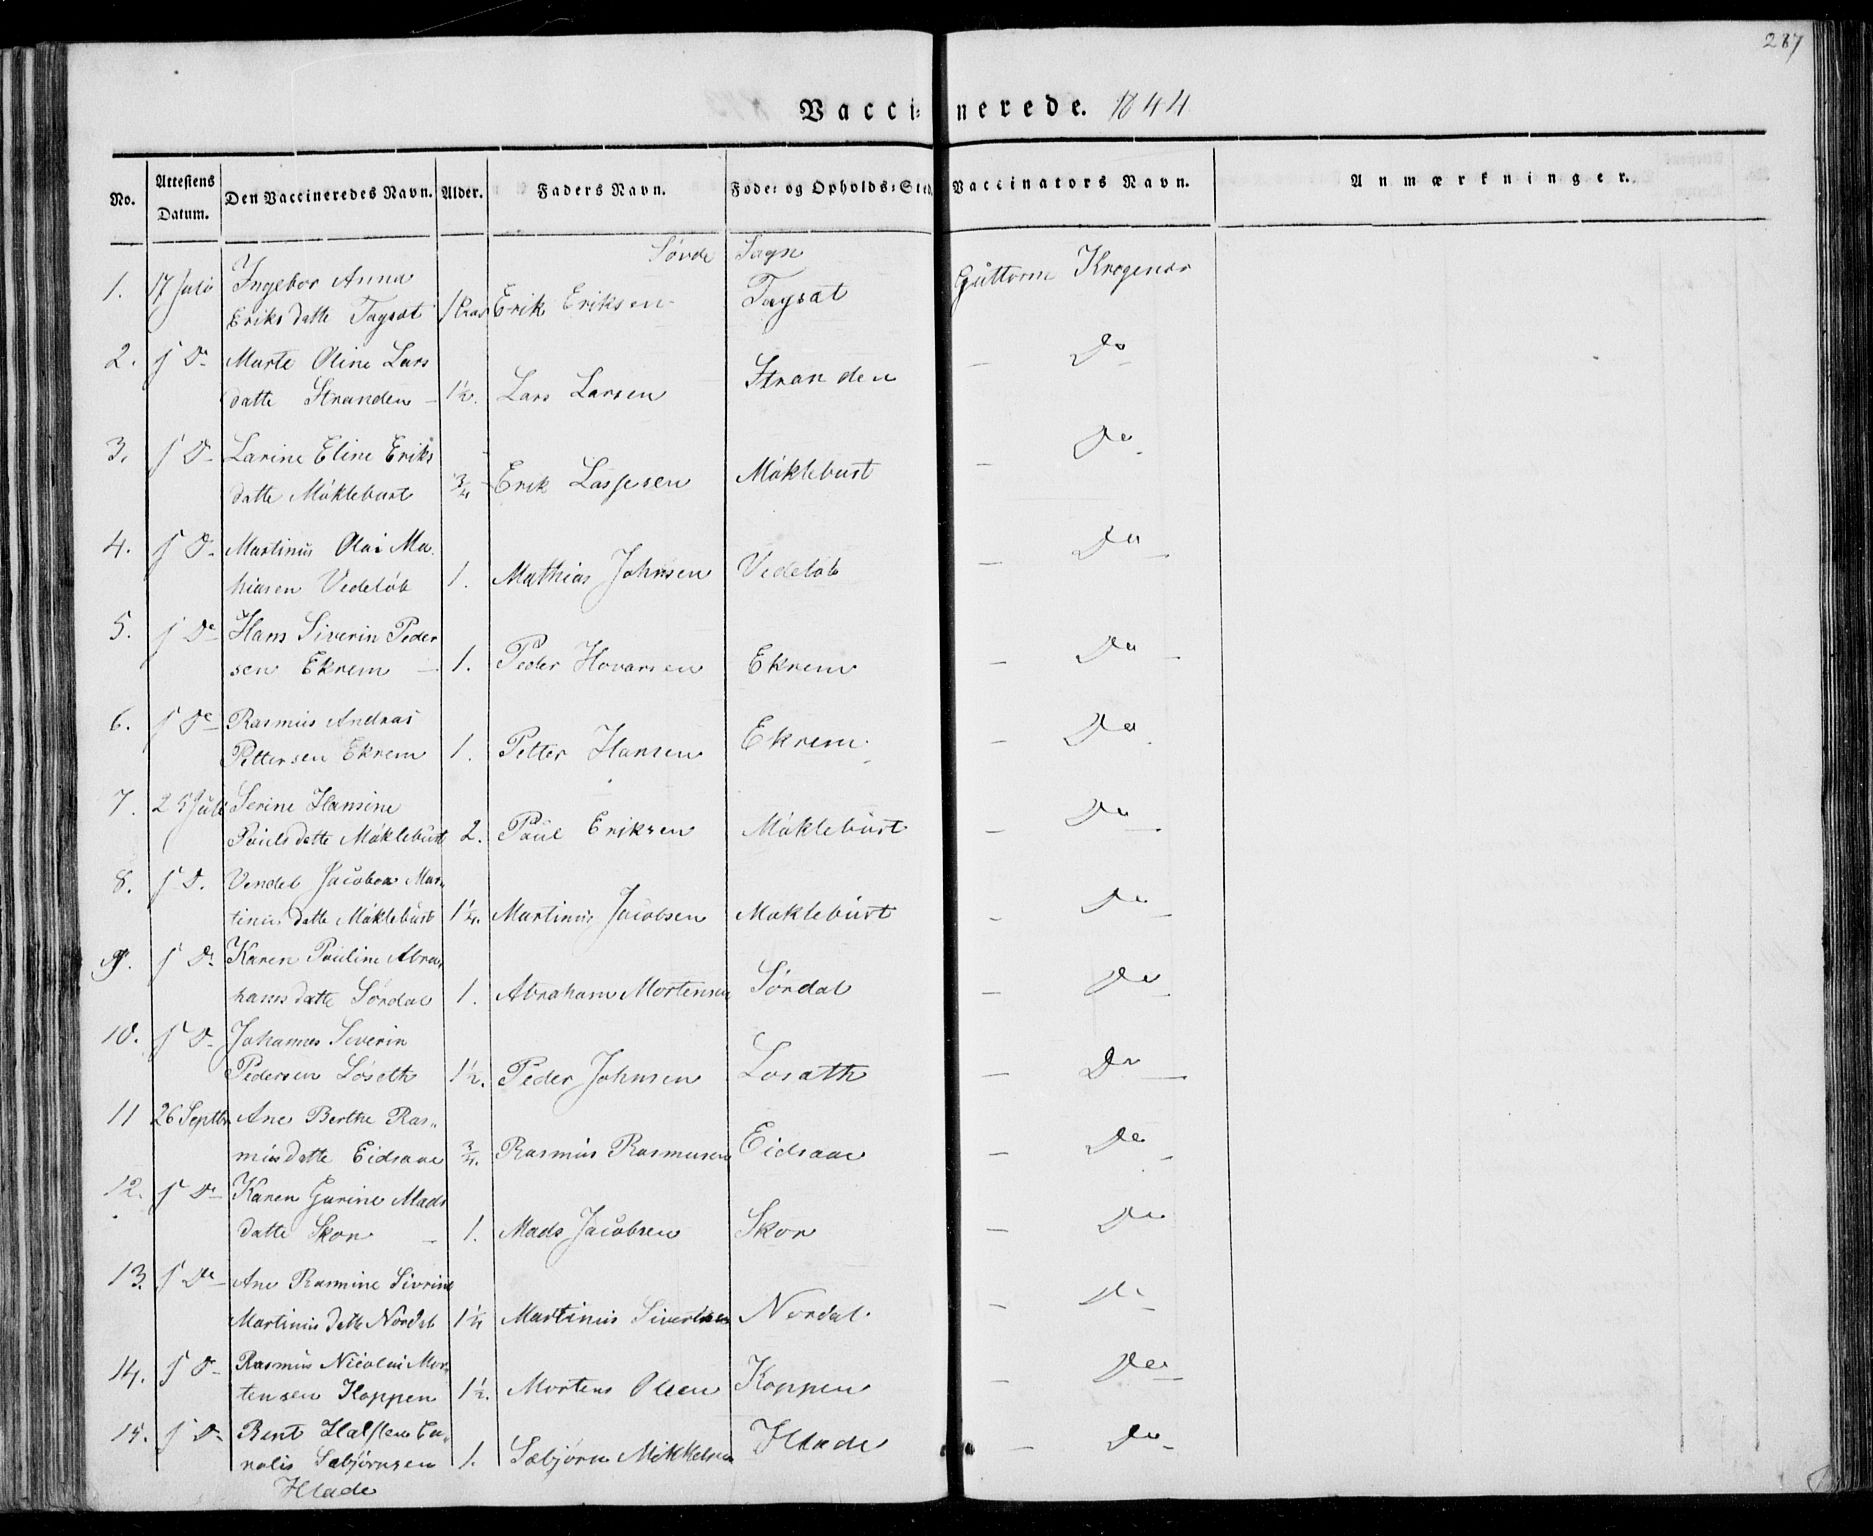 287
Vaccinerede. 1844
No. Attestens Datum. Den Vaccineredes Navn. Alder. Faders Navn. Føde- og Opholds-Sted. Vaccinators Navn. Anmærkninger.
Sövde Sogn
1. 17 Julii Ingebor Anna
Eriksdatte Tagsæt 1 Erik Eriksen Tagsæt Guttorm
2. Marte Oline Lars
datte Stranden – 1½. Lars Larsen Stranden – Do
3. Larine Eline Eriks
datte Mökleburt ¾ Erik Lassesen Mökleburt – Do
4. Martinus Olai Ma
hiasen Vedelöb 1. Mathias Johnsen Vedelöb – Do
5. Hans Siverin Peder
sen Ekrem – 1. Peder Hovarsen Ekrem – Do
6. Rasmus Andreas
Pettersen Ekrem 1. Petter Hansen Ekrem. – Do
7. 25 Juli Serine Hansine
Paulsdatte Mökleburt 2. Paul Eriksen Mökleburt – Do
8. Vendel Jacobea Mar-
tinusdatte Mökleburt 1¼. Martinus Jacobsen Mökleburt – Do
9. Karen Pauline Abra-
hamsdatte Sördal 1. Abraham Mortensen Sördal – Do
10. Johannes Severin
Pedersen Löseth 1½. Peder Johnsen Losæth – Do
11 26 Septbr Ane Berthe Ras-
musdatte Eidsaae ¾. Rasmus Rasmusen Eidsaae – Do
12. Karen Gurine Mads
datte Skor – 1. Mads Jacobsen Skor – Do
13. Ane Rasmine Sivrine
Martinusdatte Nordal 1¼ Martinus Sivertsen Nordal. – Do
14. Rasmus Nicolai Mor-
tensen Koppen 1½. Mortens Olsen Koppen – Do
15. Bent Halsten
Sæbjörnsen 1. Sæbjörn Mikkelsen Hlade – Do
Hlade